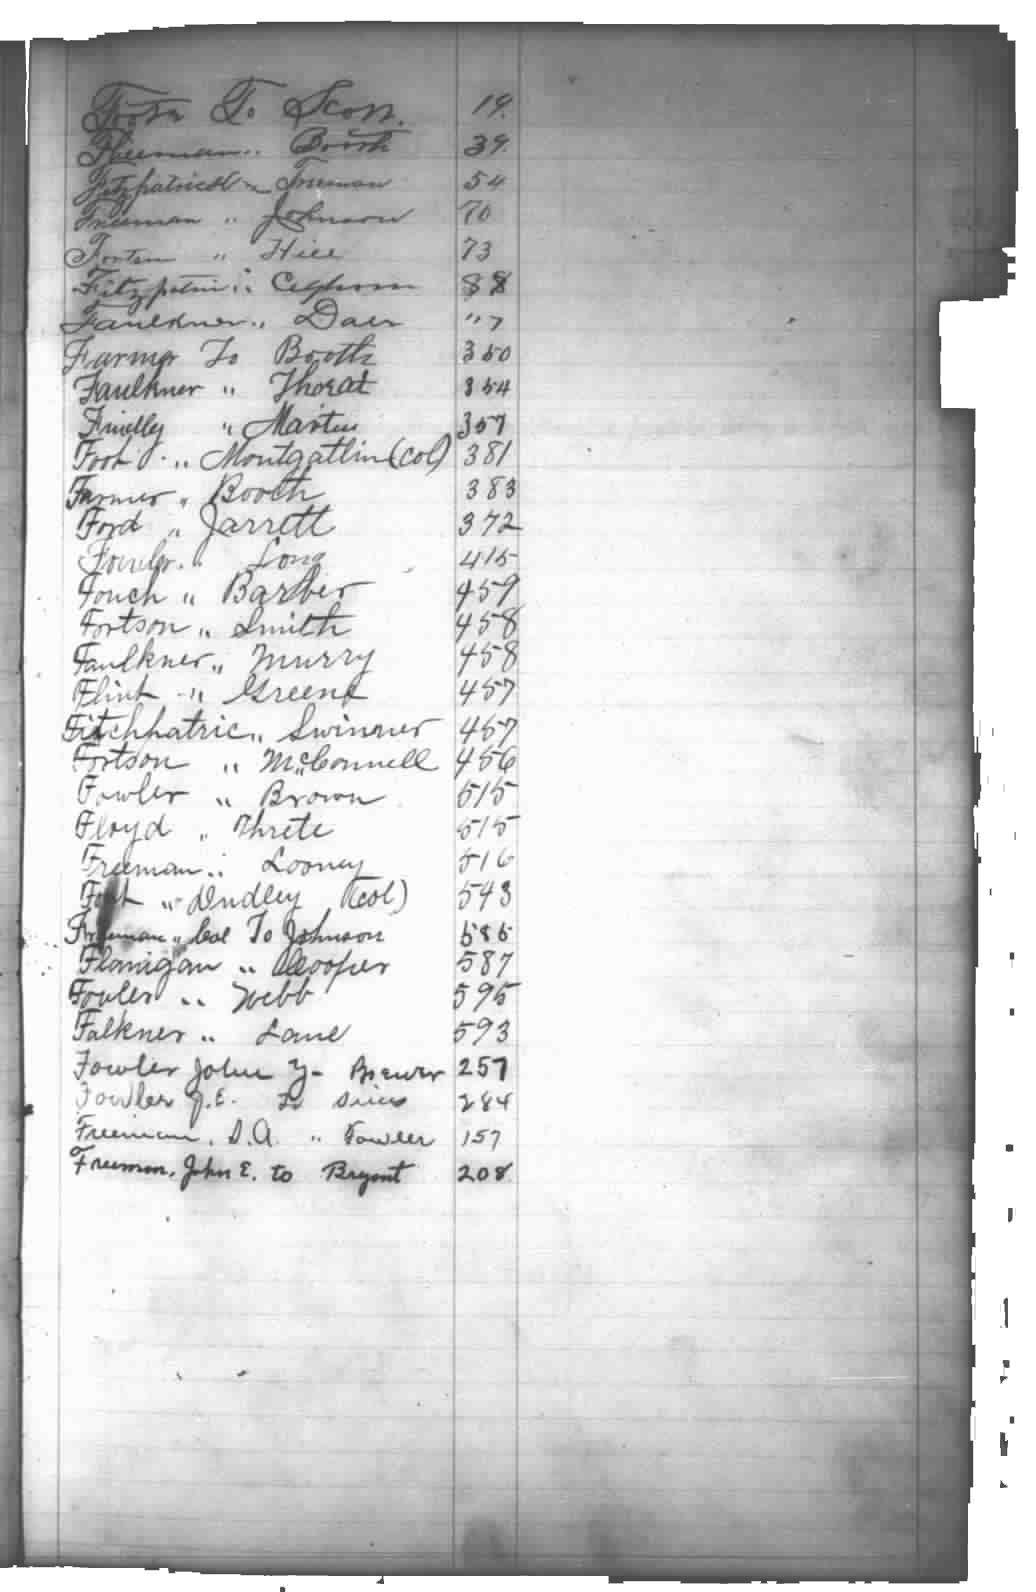 To Scott. 19.
Freeman " Booth 39.
Fitzpatrick " Freeman 54
Freeman " Johnson 70
" Hill 73
88
Faulkner " 117
Farmer To Booth 350
Faulkner " Threat 354
Findley " Martin 357
Foot " Montgatlin (Col) 381
Farmer " Booth 383
Ford " Jarrett 372
Fowler " Long 415
Fouch " Barber 459
Fortson " Smith 458
Faulkner " Murry 458
Flint " Greene 457
Fitchpatric " Swinner 457
Fortson " McConnell 456
Fowler " Brown 515
Floyd " Threte 515
Freeman " Looney 516
" Dudley (Col) 543
Freeman " Col To Johnson 585
Flanigan " Cooper 587
Fowler " Webb 595
Falkner " Lane 593
Fowler John Y - Brewer 257
Fowler J. E. to Sims 284
Freeman, D. A. " Fowler 157
Freeman, John E. to Bryant 208